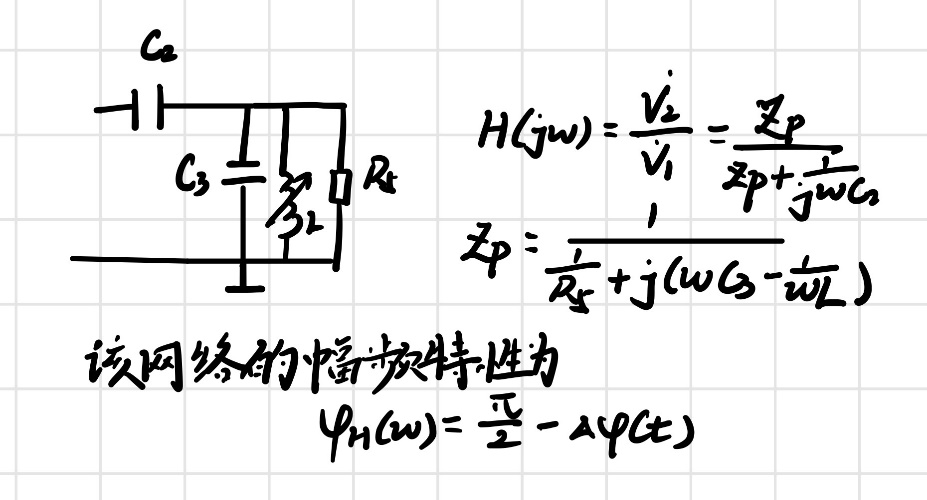 C₂
C₃
L
R₅
H(jω) = V̇₂/V̇₁ = Zp/(Zp + 1/(jωC₂))
Zp = 1/(1/R₅ + j(ωC₃ - 1/(ωL)))
该网络的幅频特性为
φH(ω) = π/2 - Δφ(t)